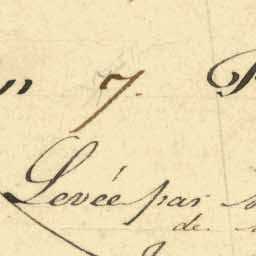 7.
Levée par
de